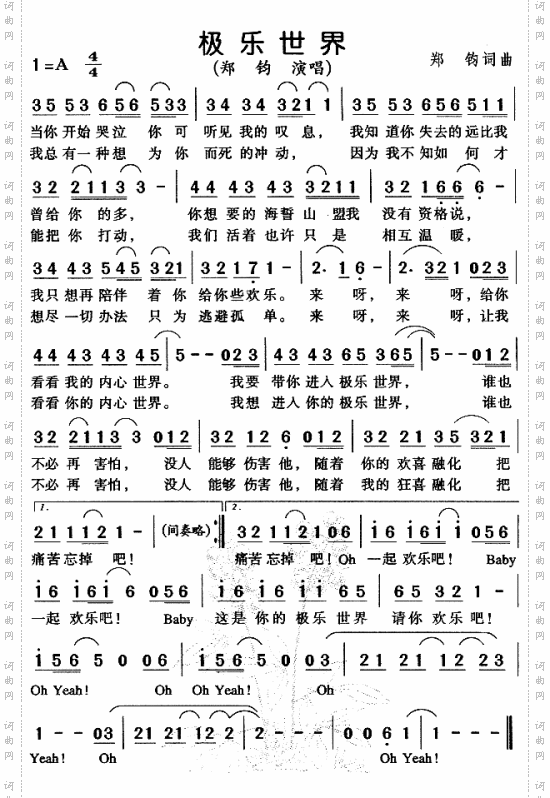 极乐世界
(郑 钧 演唱)
1=A 4/4
郑 钧词曲
35 53 656 533 | 34 34 3321 1 | 35 53 656 511 |
当你开始哭泣 你可 听见我的叹息， 我知道你失去的远比我
我总有一种想 为你 而死的冲动， 因为我不知如 何才
32 2113 3 - | 44 43 43 3211 | 32 166 6 - |
曾给你 的多， 你想要的海誓山 盟我 没有资格说，
能把你 打动， 我们活着也许只 是 相互温 暖，
34 43 545 321 | 32 171 1 - | 2· 16 - | 2· 321 023 |
我只想再陪伴 着你 给你些欢乐。 来 呀， 来 呀，给你
想尽一切办法 只为 逃避孤 单。 来 呀， 来 呀，让我
44 43 43 45 | 5 - - 023 | 43 43 65 365 | 5 - - 012 |
看看我的内心世界。 我要 带你进入极乐世界， 谁也
看看你的内心世界。 我想 进入你的极乐世界， 谁也
32 2113 3 012 | 32 12 6 012 | 32 21 35 321 |
不必再 害怕， 没人 能够伤害他，随着 你的欢喜融化 把
不必再 害怕， 没人 能够伤害他，随着 我的狂喜融化 把
1. 2.
21 1112 1 - (间奏略) :| 32 112106 | 16 161 1 056 |
痛苦忘掉 吧！ 痛苦忘掉 吧！Oh 一起欢乐吧！ Baby
16 161 6 056 | 16 116 16 56 | 16 161 6 056 |
一起 欢乐吧！ Baby 这是你的极乐世界 请你欢乐吧！ Baby
1565 0 06 | 1565 0 03 | 21 21 12 23 |
Oh Yeah! Oh Oh Yeah! Oh
1 - - 03 | 21 21 12 2 | 2 - - - | 0 0 6 1 | 1 - - - ‖
Yeah! Oh Oh Yeah!
词曲网